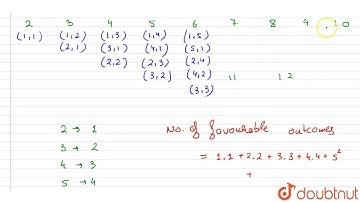 2 3 4 5 6 7 8 9 10
(1,1) (1,2) (1,3) (1,4) (1,5)
(2,1) (3,1) (4,1) (5,1)
(2,2) (2,3) (2,4)
(3,2) (4,2) 11 12
(3,3)
2 → 1 No. of favourable outcomes
3 → 2
4 → 3 = 1.1 + 2.2 + 3.3 + 4.4 + 5²
5 → 4 +
doubtnut